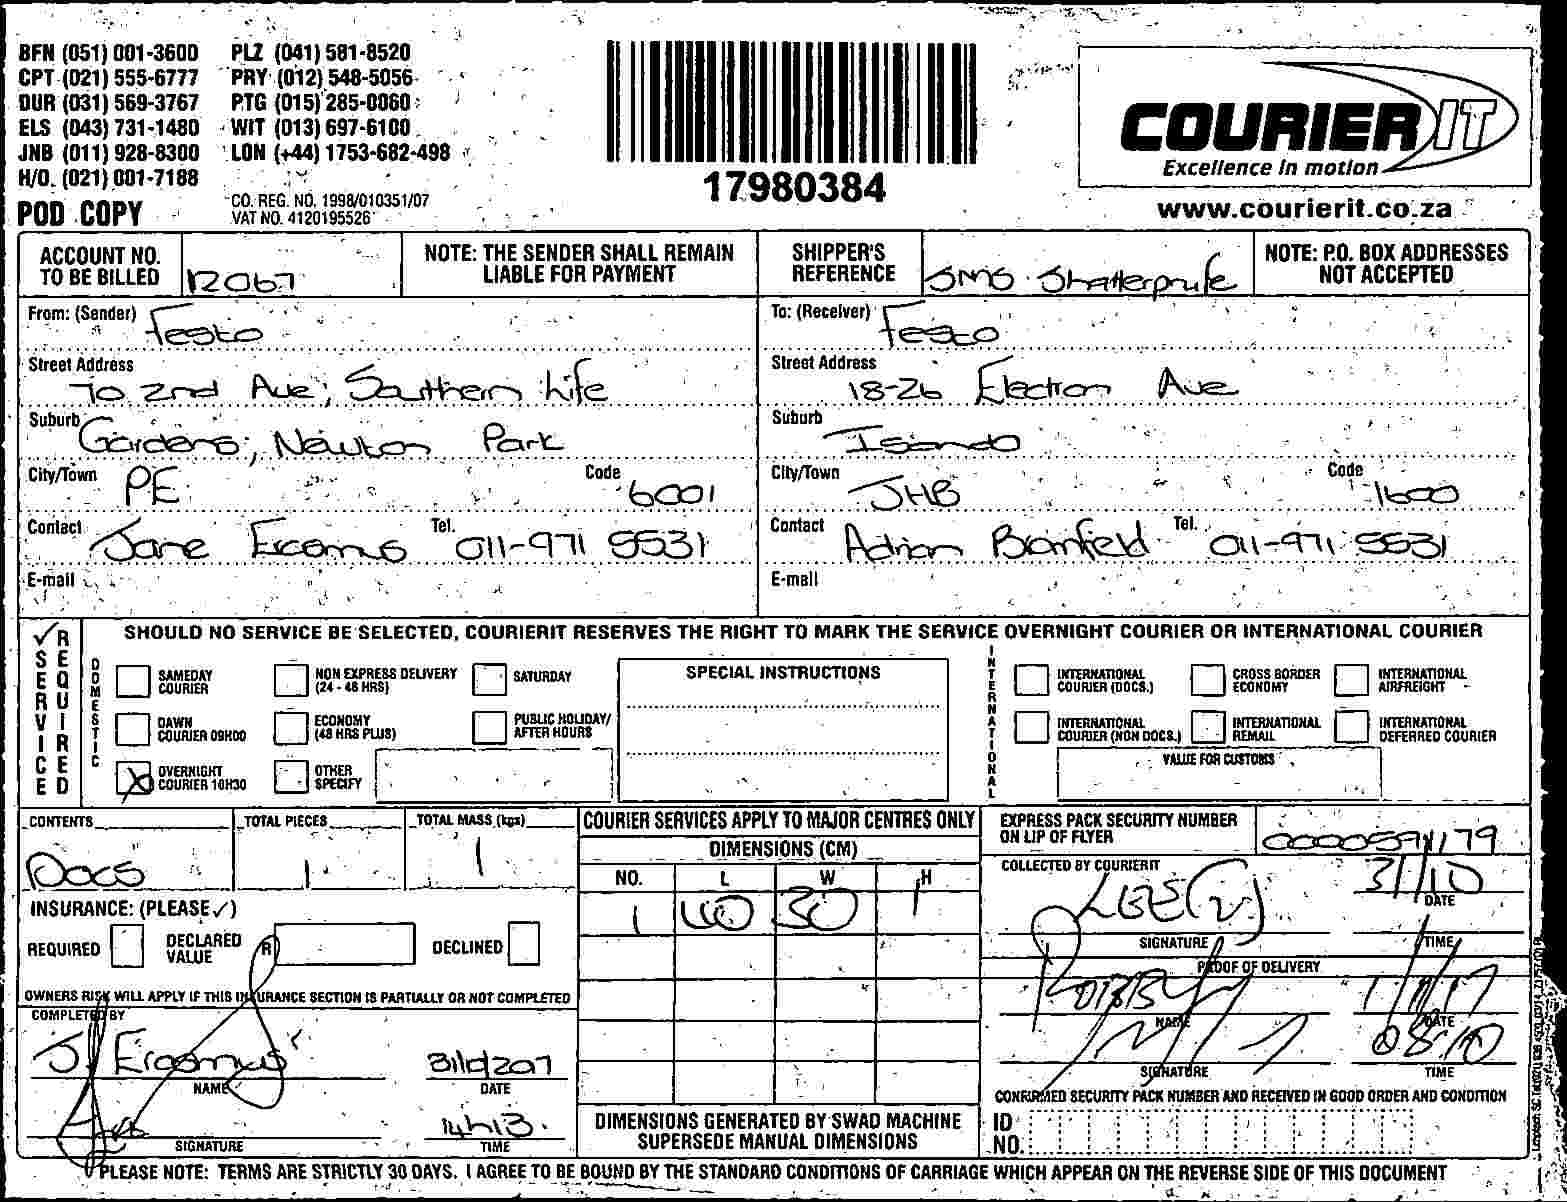 BFN (051) 001-3600 PLZ (041) 581-8520
CPT (021) 555-6777 PRY (012) 548-5056
DUR (031) 569-3767 PTG (015) 285-0060
ELS (043) 731-1480 WIT (013) 697-6100
JNB (011) 928-8300 LON (+44) 1753-682-498
H/O. (021) 001-7188
CO. REG. NO. 1998/010351/07
POD COPY VAT NO. 4120195526
17980384
COURIER IT
Excellence in motion
www.courierit.co.za
ACCOUNT NO. TO BE BILLED 12067
NOTE: THE SENDER SHALL REMAIN LIABLE FOR PAYMENT
SHIPPER'S REFERENCE SMS Shatterprufe
NOTE: P.O. BOX ADDRESSES NOT ACCEPTED
From: (Sender) Festo
Street Address 70 2nd Ave, Southern Life
Suburb Gardens, Newton Park
City/Town PE Code 6001
Contact Jane Erasmus Tel. 011-971 5531
E-mail
To: (Receiver) Festo
Street Address 18-26 Electron Ave
Suburb Isando
City/Town JHB Code 1600
Contact Adrian Bramfield Tel. 011-971 5531
E-mail
✓ SERVICE REQUIRED
SHOULD NO SERVICE BE SELECTED, COURIERIT RESERVES THE RIGHT TO MARK THE SERVICE OVERNIGHT COURIER OR INTERNATIONAL COURIER
DOMESTIC
SAMEDAY COURIER
NON EXPRESS DELIVERY (24 - 48 HRS)
SATURDAY
DAWN COURIER 09H00
ECONOMY (48 HRS PLUS)
PUBLIC HOLIDAY/ AFTER HOURS
X OVERNIGHT COURIER 10H30
OTHER SPECIFY
SPECIAL INSTRUCTIONS
INTERNATIONAL
INTERNATIONAL COURIER (DOCS.)
CROSS BORDER ECONOMY
INTERNATIONAL AIRFREIGHT
INTERNATIONAL COURIER (NON DOCS.)
INTERNATIONAL REMAIL
INTERNATIONAL DEFERRED COURIER
VALUE FOR CUSTOMS
CONTENTS Docs
TOTAL PIECES 1
TOTAL MASS (kgs) 1
INSURANCE: (PLEASE ✓)
REQUIRED DECLARED VALUE R DECLINED
OWNERS RISK WILL APPLY IF THIS INSURANCE SECTION IS PARTIALLY OR NOT COMPLETED
COMPLETED BY
J. Erasmus
NAME DATE
14h13
SIGNATURE TIME
COURIER SERVICES APPLY TO MAJOR CENTRES ONLY
DIMENSIONS (CM)
NO. L W H
1 40 30 1
DIMENSIONS GENERATED BY SWAD MACHINE SUPERSEDE MANUAL DIMENSIONS
EXPRESS PACK SECURITY NUMBER ON LIP OF FLYER
COLLECTED BY COURIERIT
31/10
DATE
SIGNATURE TIME
PROOF OF DELIVERY
1/11/17
NAME DATE
08:10
SIGNATURE TIME
CONFIRMED SECURITY PACK NUMBER AND RECEIVED IN GOOD ORDER AND CONDITION
ID NO.
PLEASE NOTE: TERMS ARE STRICTLY 30 DAYS. I AGREE TO BE BOUND BY THE STANDARD CONDITIONS OF CARRIAGE WHICH APPEAR ON THE REVERSE SIDE OF THIS DOCUMENT